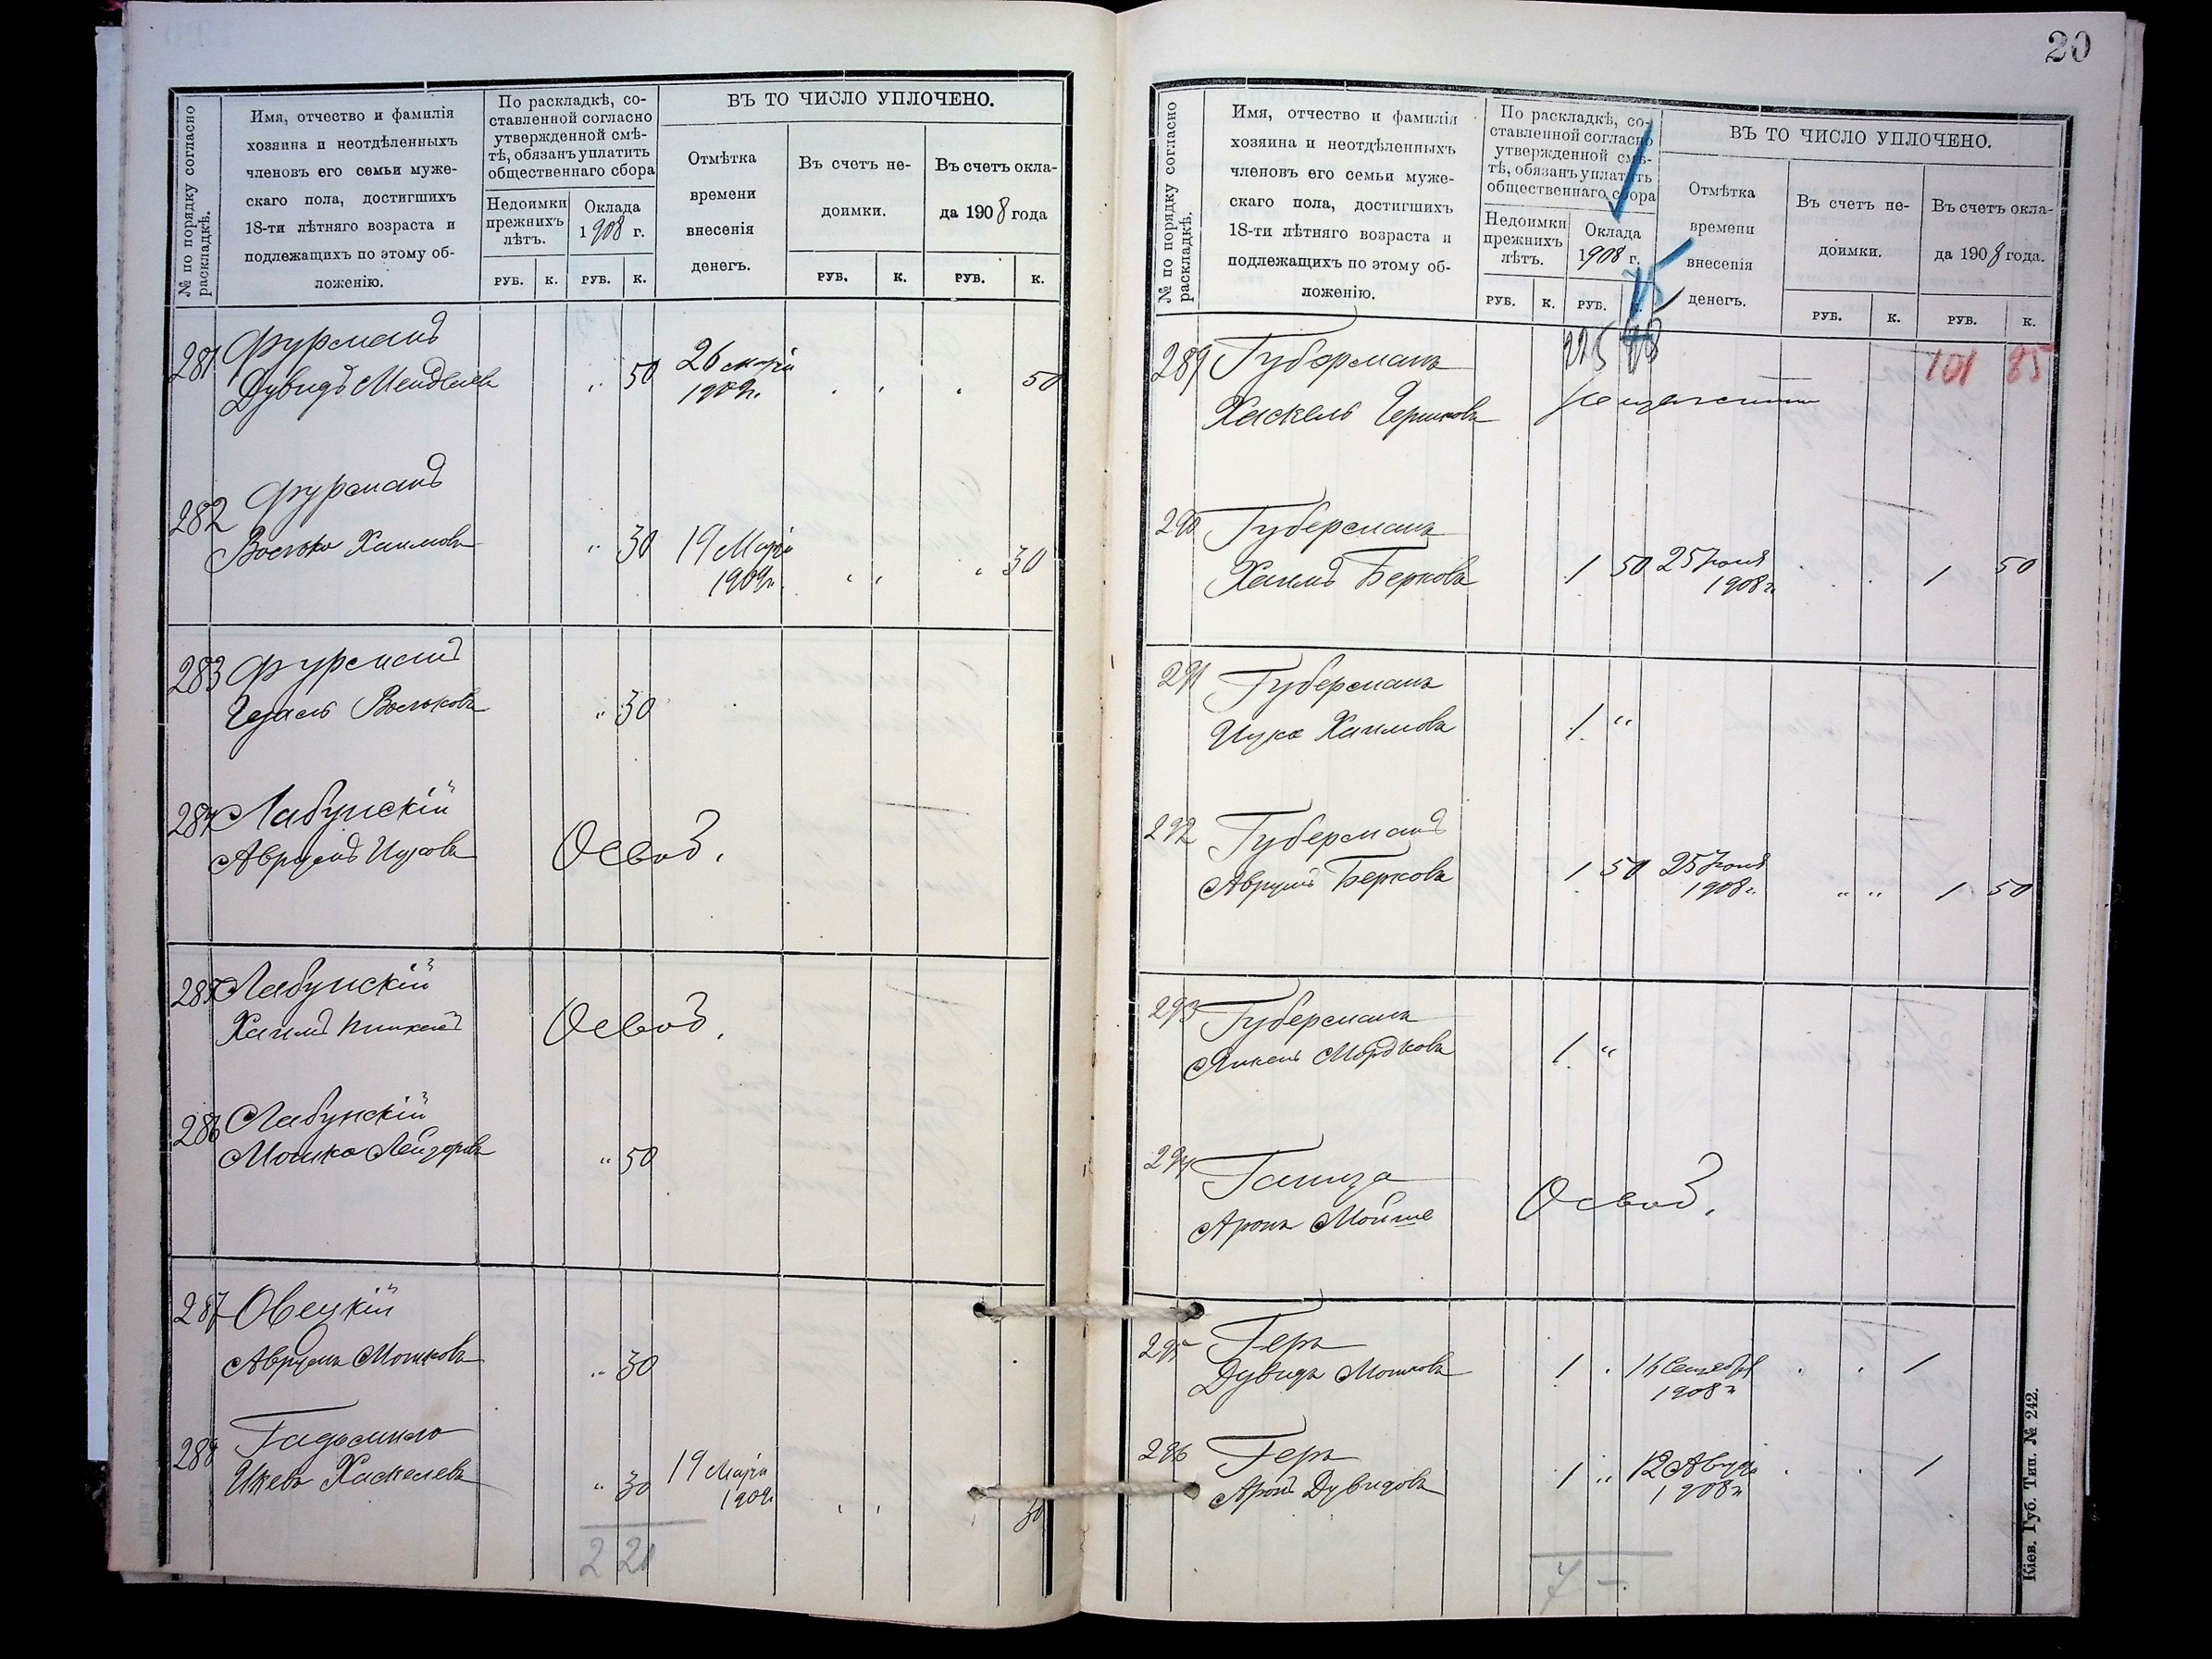 20
№ по порядку согласно
раскладкѣ.
Имя, отчество и фамилія
хозяина и неотдѣленныхъ
членовъ его семьи муже-
скаго пола, достигшихъ
18-ти лѣтняго возраста и
подлежащихъ по этому об-
ложенію.
По раскладкѣ, со-
ставленной согласно
утвержденной смѣ-
тѣ, обязанъ уплатить
общественнаго сбора
Недоимки
прежнихъ
лѣтъ.
Оклада
1908 г.
РУБ. К. РУБ. К.
ВЪ ТО ЧИСЛО УПЛОЧЕНО.
Отмѣтка
времени
внесенія
денегъ.
Въ счетъ не-
доимки.
РУБ. К.
Въ счетъ окла-
да 1908 года
РУБ. К.
281 Фурманъ
Дувидъ Мендлевъ " 50 26 Марта 1909г. 50
282 Фурманъ
Волько Хаимовъ " 30 19 Марта 1909г. " 30
283 Фурманъ
Вольковъ " 30
284 Лабунскій
Аврумъ Ицковъ Освоб.
285 Лабунскій
Хаимъ Освоб.
286 Лабунскій
Мошко Лейзеровъ " 50
287 Овецкій
Аврумъ Мошковъ " 30
288
Хаскелевъ " 30 19 Марта 1909г. 30
2 21
№ по порядку согласно
раскладкѣ.
Имя, отчество и фамилія
хозяина и неотдѣленныхъ
членовъ его семьи муже-
скаго пола, достигшихъ
18-ти лѣтняго возраста и
подлежащихъ по этому об-
ложенію.
По раскладкѣ, со-
ставленной согласно
утвержденной смѣ-
тѣ, обязанъ уплатить
общественнаго сбора
Недоимки
прежнихъ
лѣтъ.
Оклада
1908 г.
РУБ. К. РУБ.
ВЪ ТО ЧИСЛО УПЛОЧЕНО.
Отмѣтка
времени
внесенія
денегъ.
Въ счетъ не-
доимки.
РУБ. К.
Въ счетъ окла-
да 1908 года.
РУБ. К.
289 Губерманъ 101 85
Хаскель Гершковъ
290 Губерманъ
Хаимъ Берковъ 1 50 25 Іюня 1908г. 1 50
291 Губерманъ
Ицко Хаимовъ 1 "
292 Губерманъ
Аврумъ Берковъ 1 50 25 Іюня 1908г. " " 1 50
293 Губерманъ
Янкель Мордковъ 1 "
294 Ганза
Аронъ Мойше Освоб.
295 Геръ
Дувидъ Мошковъ 1 Сентября 1908г 1
296 Геръ
Аронъ Дувидовъ 1 " 12 Августа 1908г 1
7 -
Кіев. Губ. Тип. № 242.